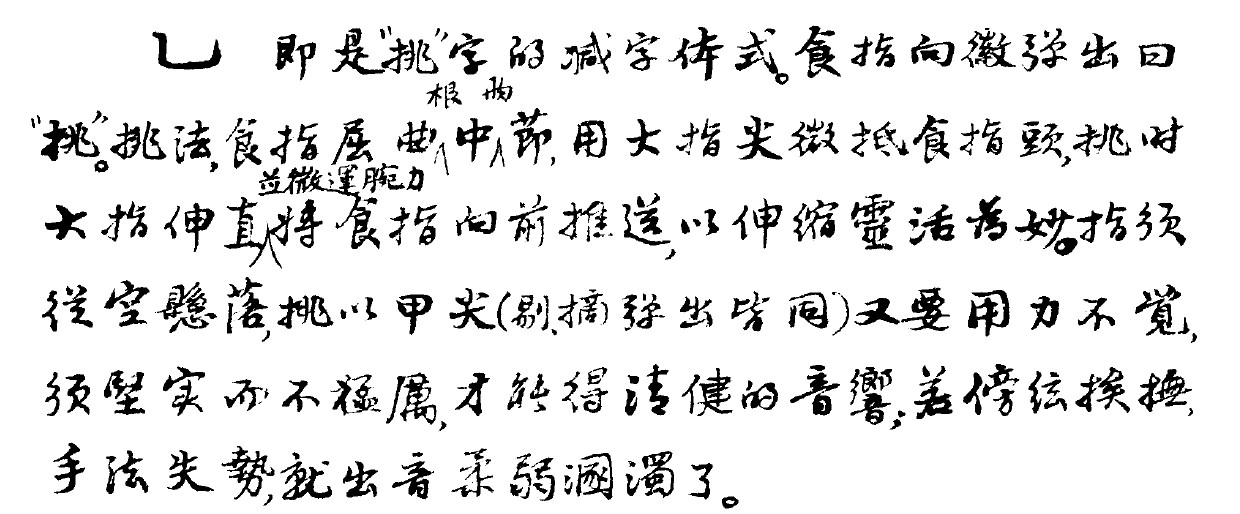 乚 即是“挑”字的减字体式。食指向徽弹出曰
根 两
“挑”。挑法,食指屈曲中節,用大指尖微抵食指頭,挑时
並微運腕力
大指伸直將食指向前推送,以伸缩靈活為妙。指须
從空懸落,挑以甲尖(剔、摘弹出皆同)又要用力不覚,
须堅实而不猛厲,才能得清健的音響;若傍弦挨撫,
手法失勢,就出音柔弱溷濁了。